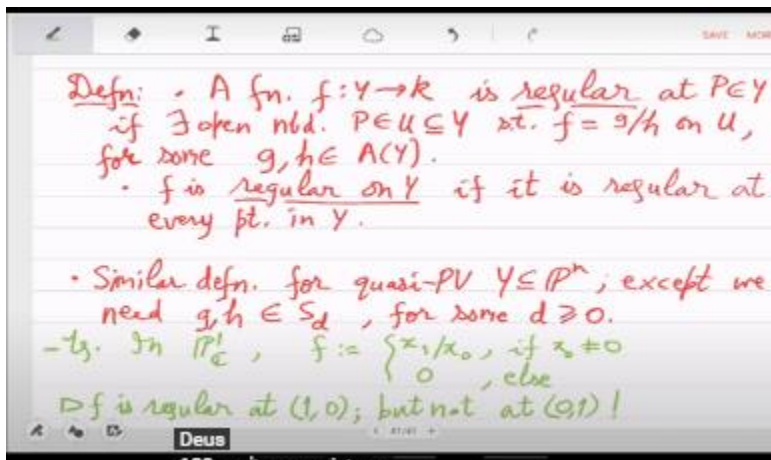 SAVE MORE
Defn: · A fn. f: Y→k is regular at P∈Y
if ∃ open nbd. P∈U⊆Y s.t. f = g/h on U,
for some g,h ∈ A(Y).
· f is regular on Y if it is regular at
every pt. in Y.
· Similar defn. for quasi-PV Y⊆ℙⁿ, except we
need g,h ∈ S_d, for some d ⩾ 0.
- Eg. In ℙ¹_ℂ, f := { x₁/x₀, if x₀≠0
0, else
▷ f is regular at (1,0); but not at (0,1)!
Deus